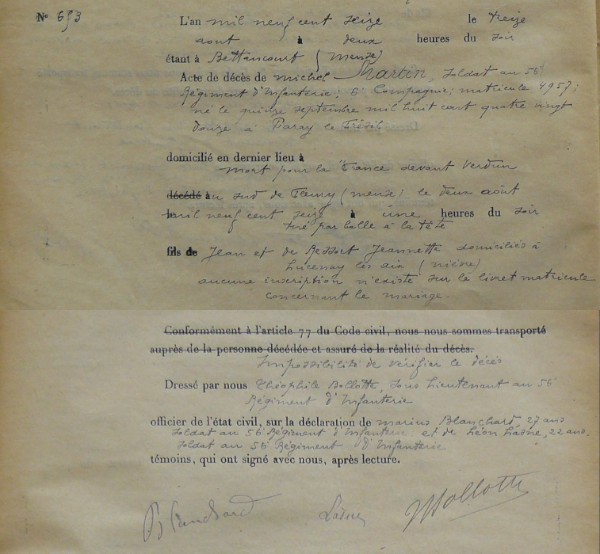 N° 693
L'an mil neuf cent seize le treize
août à deux heures du soir
étant à Bettancourt (Meuse)
Acte de décès de Michel Martin, soldat au 56e
Régiment d'Infanterie, 6e Compagnie; matricule 4957;
né le quinze septembre mil huit cent quatre vingt
douze à Paray le Frésil
domicilié en dernier lieu à
mort pour la France devant Verdun
décédé au sud de Fleury (Meuse) le deux août
mil neuf cent seize à une heures du soir
tué par balle à la tête
fils de Jean et de Jeannette domiciliés à
Lucenay les Aix (Nièvre)
aucune inscription n'existe sur le livret matricule
concernant le mariage.
Conformément à l'article 77 du Code civil, nous nous sommes transporté
auprès de la personne décédée et assuré de la réalité du décès.
Impossibilité de vérifier le décès
Dressé par nous Théophile Bollotte, sous Lieutenant au 56e
Régiment d'Infanterie
officier de l'état civil, sur la déclaration de Marius Blanchard, 27 ans
soldat au 56e Régiment d'Infanterie et de Léon 22 ans,
soldat au 56e Régiment d'Infanterie
témoins, qui ont signé avec nous, après lecture.
Blanchard Bollotte